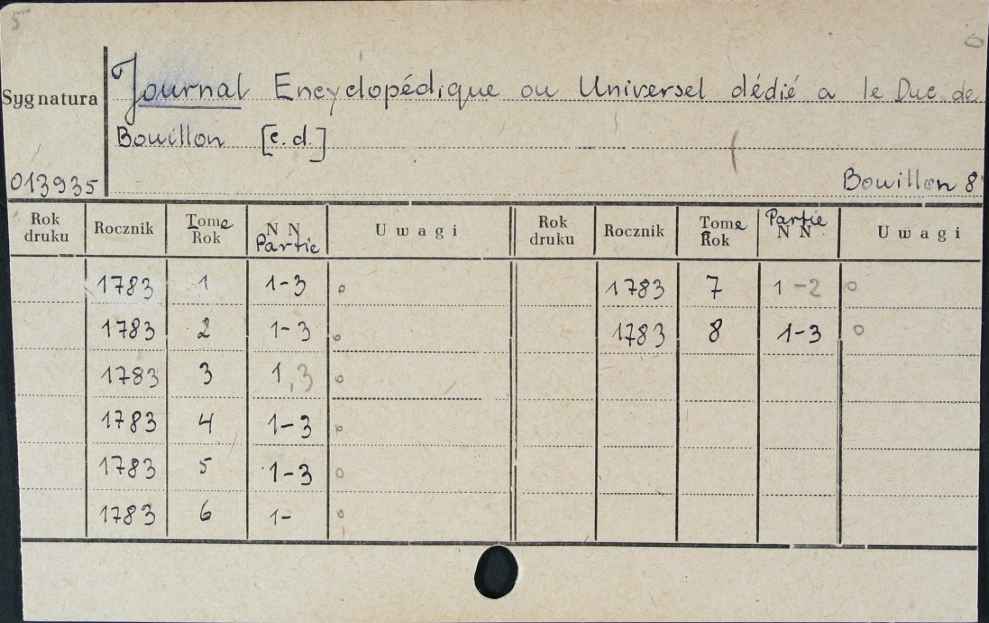 5
Journal Encyclopédique ou Universel dédié a le Duc de
Sygnatura
Bouillon [c.d.]
013935 Bouillon 8°
Rok druku Rocznik Tome Rok NN Partie Uwagi Rok druku Rocznik Tome Rok Partie NN Uwagi
1783 1 1-3 o 1783 7 1-2 o
1783 2 1-3 o 1783 8 1-3 o
1783 3 1,3 o
1783 4 1-3 o
1783 5 1-3 o
1783 6 1- o